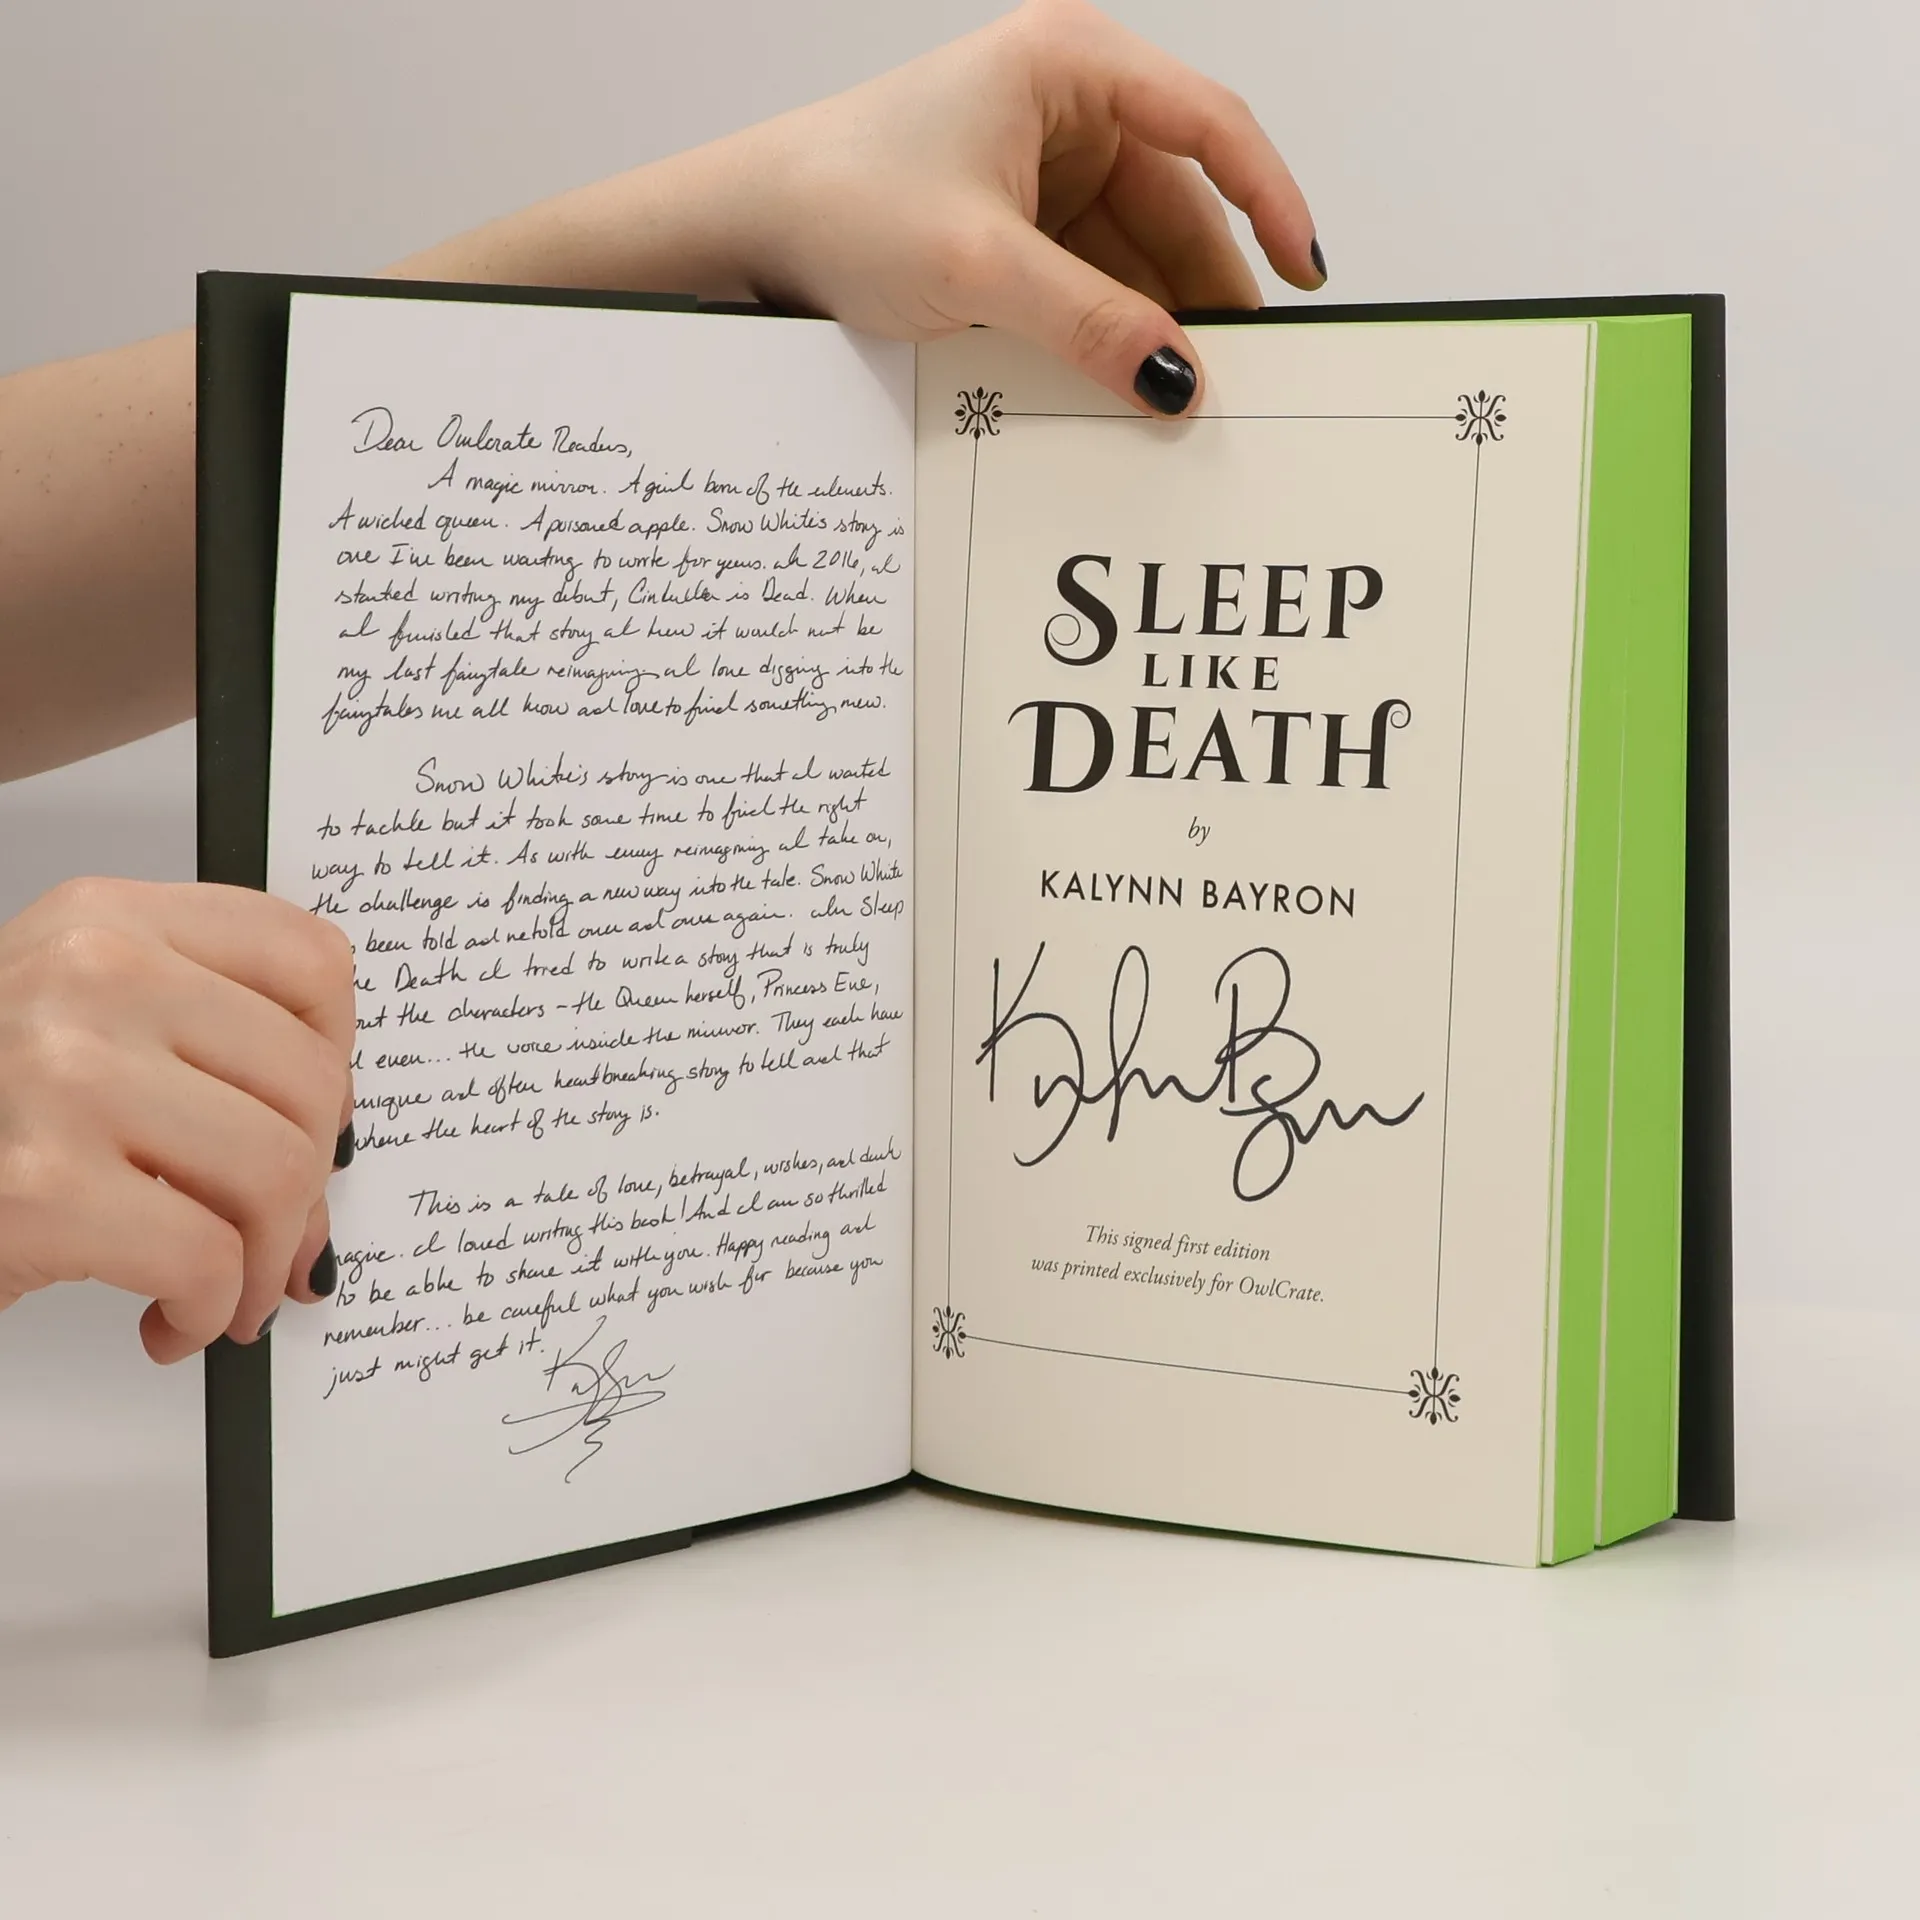 Dear Owlcrate Readers,
A magic mirror. A girl born of the elements.
A wicked queen. A poisoned apple. Snow White's story is
one I've been wanting to write for years. In 2016, I
started writing my debut, Cinderella is Dead. When
I finished that story I knew it would not be
my last fairytale reimagining. I love digging into the
fairytales we all know and love to find something new.
Snow White's story is one that I wanted
to tackle but it took some time to find the right
way to tell it. As with every reimagining I take on,
the challenge is finding a new way into the tale. Snow White
been told and retold over and over again. In Sleep
Death I tried to write a story that is truly
the characters - the Queen herself, Princess Eve,
even... the voice inside the mirror. They each have
unique and often heartbreaking story to tell and that
where the heart of the story is.
This is a tale of love, betrayal, wishes, and dark
magic. I loved writing this book! And I am so thrilled
to be able to share it with you. Happy reading and
remember... be careful what you wish for because you
just might get it.
SLEEP
LIKE
DEATH
by
KALYNN BAYRON
This signed first edition
was printed exclusively for OwlCrate.